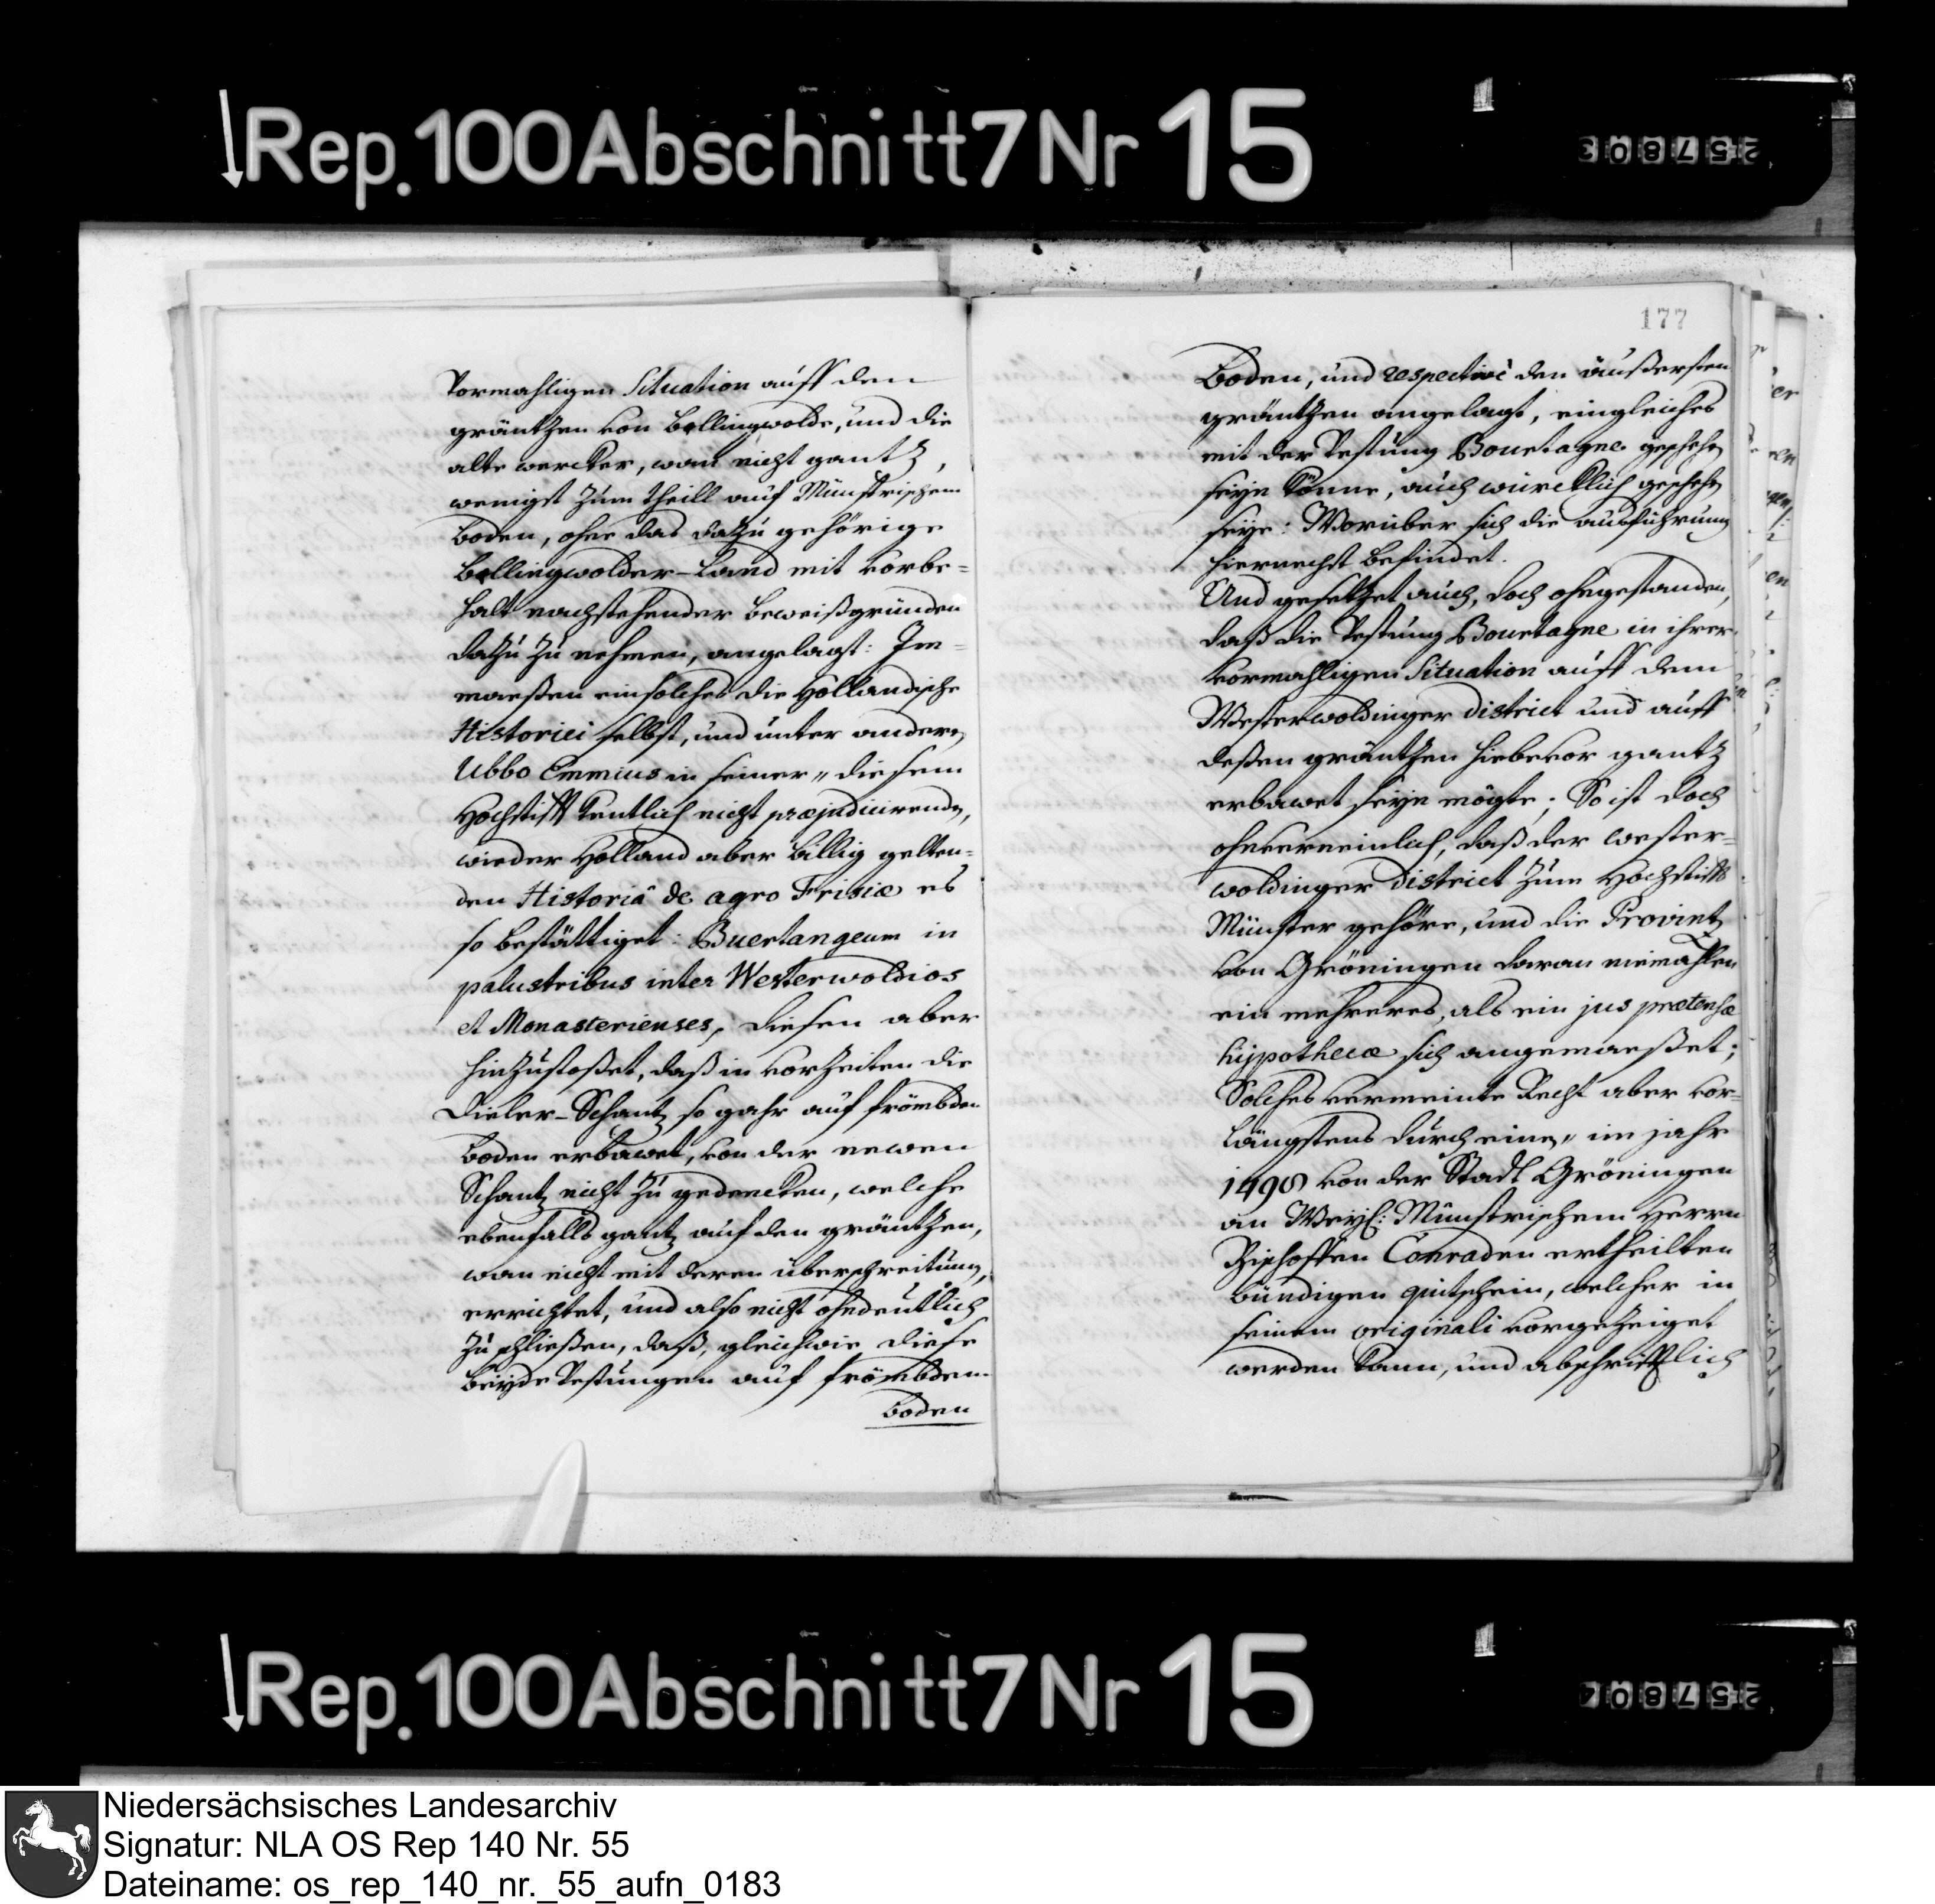 Rep. 100 Abschnitt 7 Nr 15
257803
vormahligen Situation auff den
gräntzen von Bellingwolde, und die
alte wercker, wan nicht gantz,
wenigst zum theill auf Münstrischem
boden, ohne das dazu gehörige
Bellingwolder-Land mit vorbe-
halt nachstehender beweißgründen
dazu zu nehmen, angelagt: Im-
maeßen ein solches die Holländische
Historici selbst, und unter andern
Ubbo Emmius in seiner " diesem
Hochstifft kentlich nicht præjudicirenden,
wieder Holland aber billig gelten-
den Historiâ de agro Frisiæ es
so bestättiget: Buertangeum in
palustribus inter Westerwoldios
et Monasterienses, diesen aber
hinzustoßet, daß in vorzeiten die
Dieler-Schantz so gahr auf frömbden
boden erbawet, von der newen
Schantz nicht zu gedencken, welche
ebenfalls gantz auf den gräntzen,
wan nicht mit deren überschreitung,
errichtet, und also nicht ohndeutlich
zu schließen, daß, gleichwie diese
beyde Vestungen auf frömbdem
boden
177
Boden, und respectivè den äußersten
gräntzen angelagt, ein gleiches
mit der Vestung Bourtagne geschehen
seyn könne, auch würcklich geschehen
seye: Worüber sich die ausführung
hiernechst befindet.
Und gesetzet auch, doch ohngestanden,
daß die Vestung Bourtagne in ihrer
vormahligen Situation auff dem
Westerwoldinger district und auff
deßen gräntzen hiebevor gantz
erbawet seyn mögte; So ist doch
ohnverneinlich, daß der Wester-
woldinger district zum Hochstifft
Münster gehöre, und die Provintz
von Gröningen daran niemahlen
ein mehreres, als ein jus prætensæ
hijpothecæ sich angemaeßet;
Solches vermeinte Recht aber vor-
längstens durch einen " im jahr
1498 von der Stadt Gröningen
an Weyl: Münstrischem Herrn
Bischoffen Conraden ertheilten
bündigen quitschein, welcher in
seinem originali vorgezeiget
werden kann, und abschrifftlich
Rep. 100 Abschnitt 7 Nr 15
257804
Niedersächsisches Landesarchiv
Signatur: NLA OS Rep 140 Nr. 55
Dateiname: os_rep_140_nr._55_aufn_0183